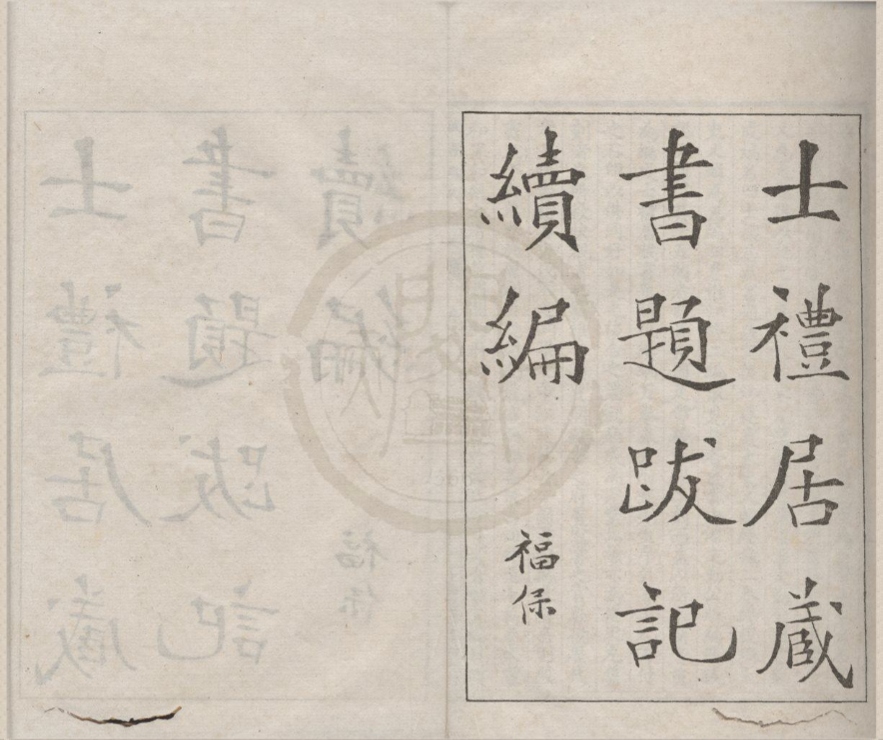 士禮居藏
書題跋記
續編
福保